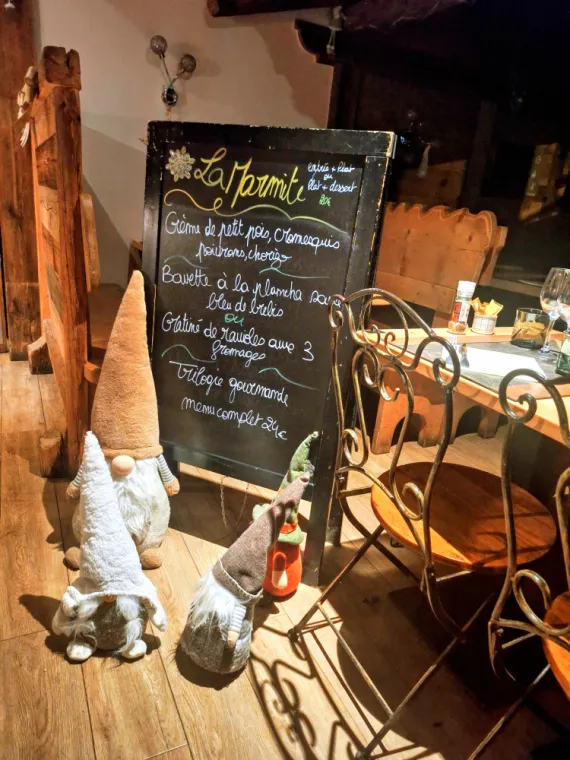 La Marmite
Entrée + Plat
ou
Plat + dessert
20€
Crème de petit pois, cromesquis
poivrons, chorizo
Bavette à la plancha sauce
bleu de brebis
ou
Gratiné de ravioles aux 3
fromages
Trilogie gourmande
menu complet 24€